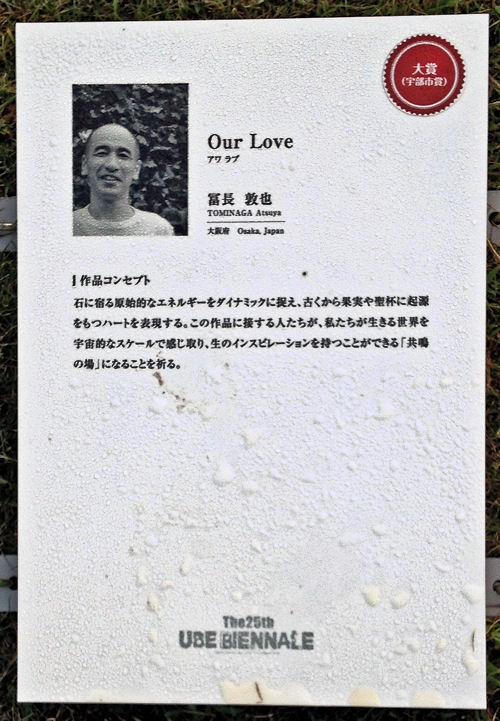 大賞
（宇部市賞）
Our Love
アワ ラブ
冨長 敦也
TOMINAGA Atsuya
大阪府 Osaka, Japan
作品コンセプト
石に宿る原始的なエネルギーをダイナミックに捉え、古くから果実や聖杯に起源
をもつハートを表現する。この作品に接する人たちが、私たちが生きる世界を
宇宙的なスケールで感じ取り、生のインスピレーションを持つことができる「共鳴
の場」になることを祈る。
The25th
UBE BIENNALE